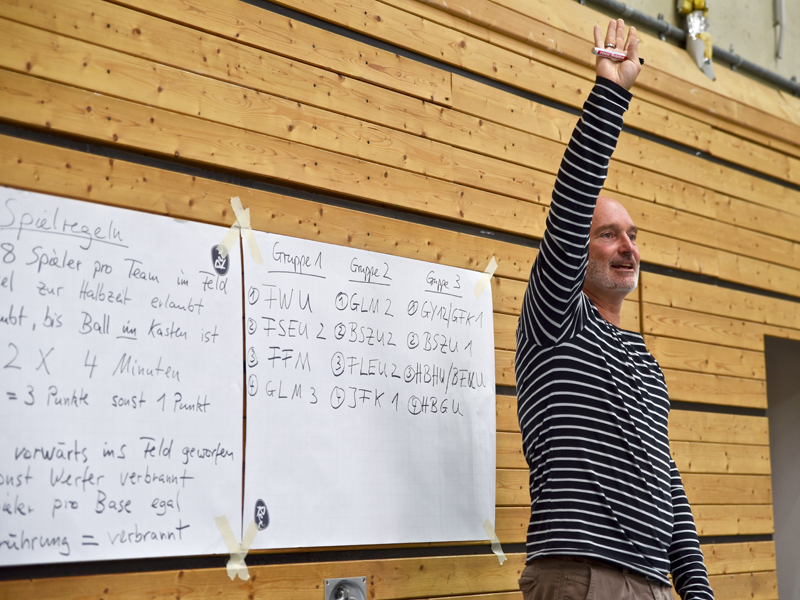 Spielregeln
8 Spieler pro Team im Feld
zur Halbzeit erlaubt
bis Ball in Kasten ist
2 X 4 Minuten
= 3 Punkte sonst 1 Punkt
vorwärts ins Feld geworfen
Werfer verbrannt
pro Base egal
= verbrannt
Gruppe 1
① FWU
② FSEU 2
③ FFM
④ GLM 3
Gruppe 2
① GLM 2
② BSZU 2
③ FLEU 2
④ JFK 1
Gruppe 3
① GY12/GFK 1
② BSZU 1
④ HBGU